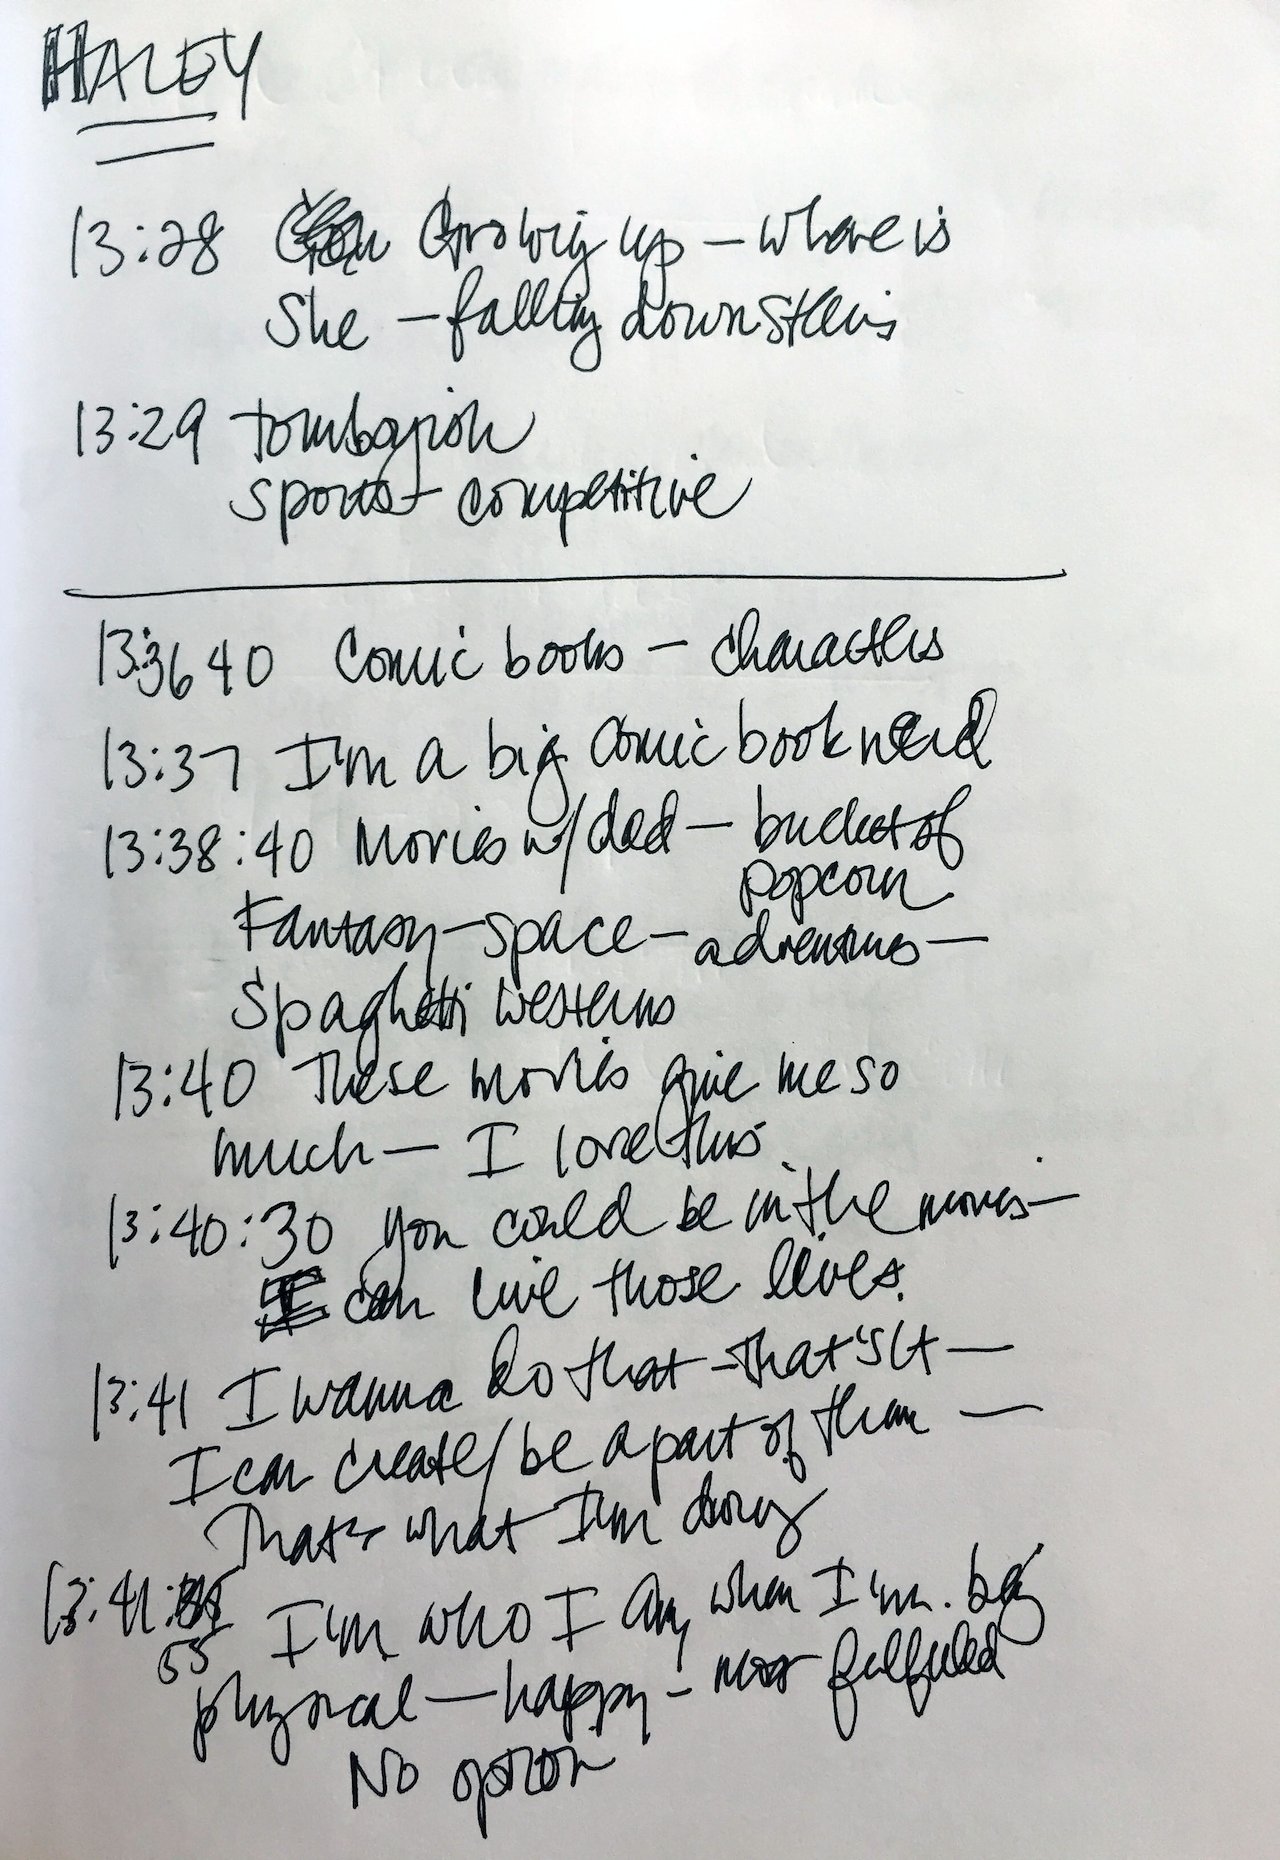 HALEY
13:28 Growing up – where is
She – falling down stairs
13:29 tomboyish
sports – competitive
13:36 40 Comic books – characters
13:37 I'm a big comic book nerd
13:38:40 Movies w/ dad – bucket of
popcorn
Fantasy – space – adventures –
Spaghetti westerns
13:40 These movies give me so
much – I love this
13:40:30 you could be in the movies –
can live those lives.
13:41 I wanna do that – that's it –
I can create/be a part of them –
That's what I'm doing
13:41:
55 I'm who I am, when I'm being
physical – happy – most fulfilled
No option